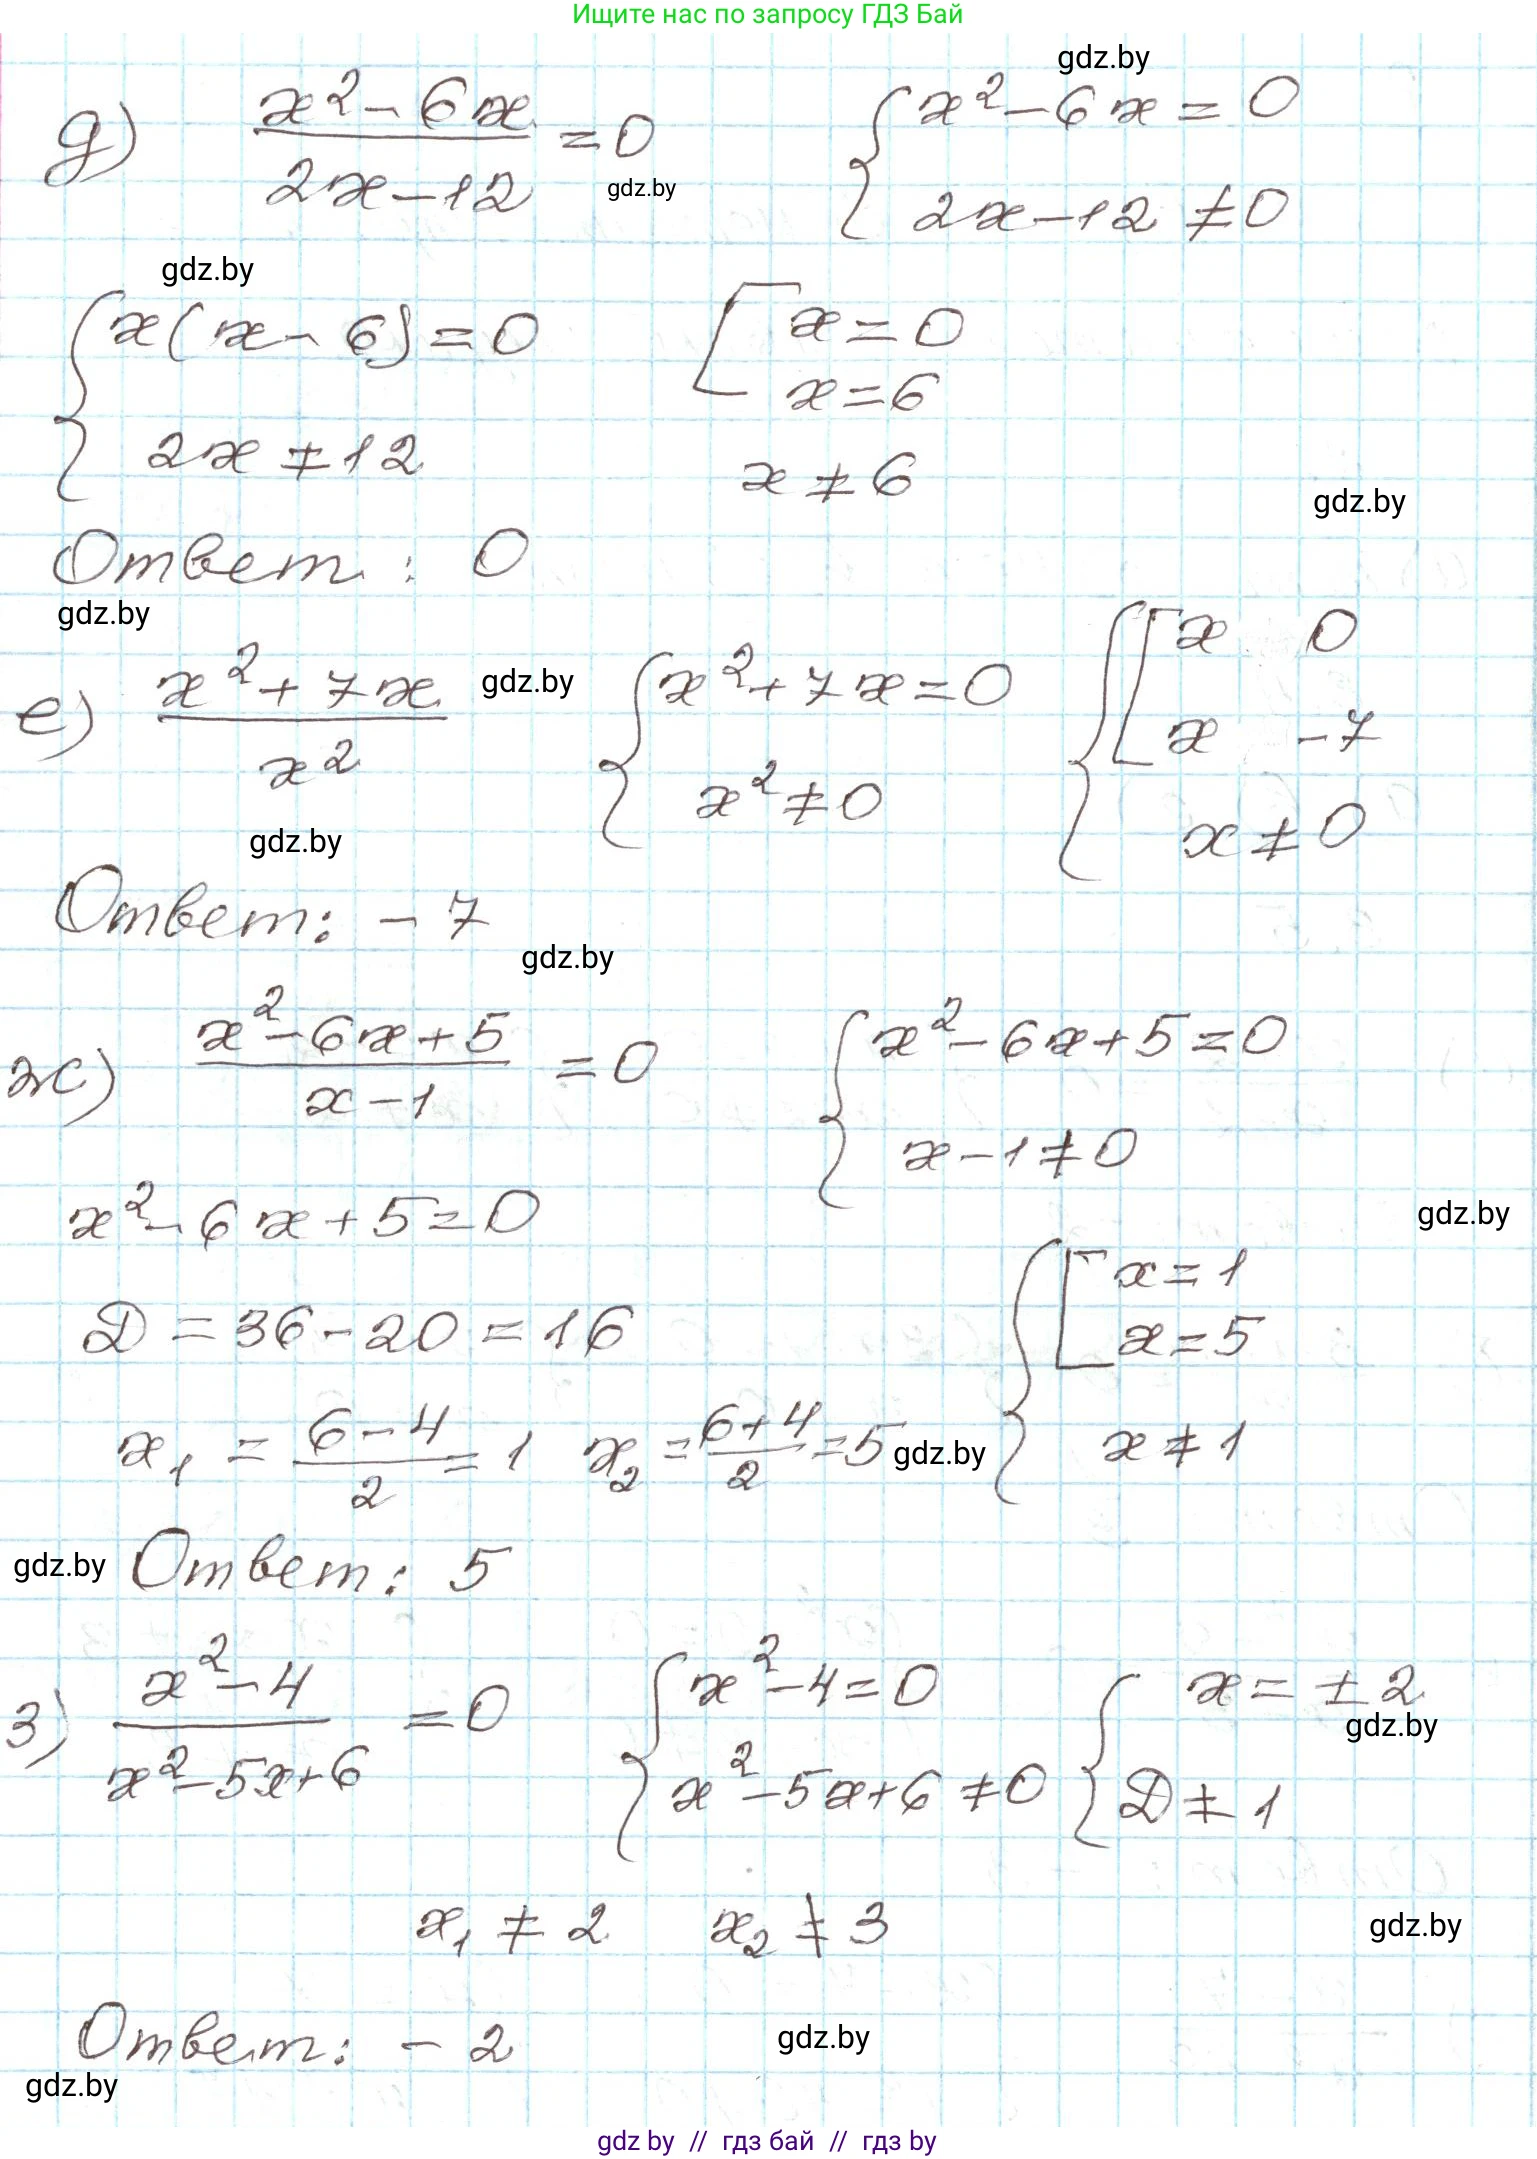 Ищите нас по запросу ГДЗ Бай
gdz.by
д) (x² - 6x)/(2x - 12) = 0 { x² - 6x = 0
2x - 12 ≠ 0
gdz.by
gdz.by
{ x(x - 6) = 0 [ x = 0
x = 6
2x ≠ 12 x ≠ 6
gdz.by
Ответ: 0
gdz.by
е) (x² + 7x)/x² gdz.by { x² + 7x = 0 { [ x 0
x -7
x² ≠ 0 x ≠ 0
gdz.by
Ответ: -7
gdz.by
ж) (x² - 6x + 5)/(x - 1) = 0 { x² - 6x + 5 = 0
x - 1 ≠ 0
x² - 6x + 5 = 0
gdz.by
D = 36 - 20 = 16 { [ x = 1
x = 5
x₁ = (6 - 4)/2 = 1 x₂ = (6 + 4)/2 = 5 gdz.by x ≠ 1
gdz.by Ответ: 5
з) (x² - 4)/(x² - 5x + 6) = 0 { x² - 4 = 0 { x = ± 2
gdz.by
x² - 5x + 6 ≠ 0 D ≠ 1
x₁ ≠ 2 x₂ ≠ 3 gdz.by
Ответ: -2 gdz.by
gdz.by
gdz by // гдз бай // гдз by